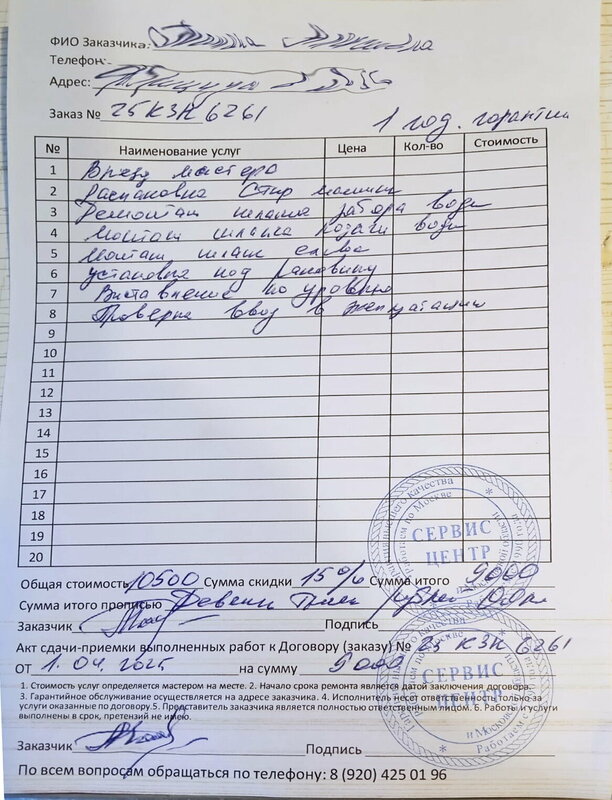 ФИО Заказчика:
Телефон:
Адрес:
Заказ № 25КЗН6261 1 год. гарантии
№ Наименование услуг Цена Кол-во Стоимость
1 Выезд мастера
2 Распаковка Стир машины
3 Демонтаж шланга забора воды
4 Монтаж шланга подачи воды
5 Монтаж шланг слива
6 установка под раковину
7 Выставление по уровню
8 Проверка ввод в эксплуатации
9
10
11
12
13
14
15
16
17
18
19
20
СЕРВИС
ЦЕНТР
Общая стоимость 10500 Сумма скидки 15% Сумма итого 9000
Сумма итого прописью Девять рублей 00
Заказчик Подпись
Акт сдачи-приемки выполненных работ к Договору (заказу) № 25 КЗН 6261
ОТ 1.04.2025 на сумму 9000
СЕРВИС
ЦЕНТР
и Москов
Работаем с
1. Стоимость услуг определяется мастером на месте. 2. Начало срока ремонта является датой заключения договора.
3. Гарантийное обслуживание осуществляется на адресе заказчика. 4. Исполнитель несет ответственность только за
услуги оказанные по договору.5. Представитель заказчика является полностью ответственным лицом. 6. Работы и услуги
выполнены в срок, претензий не имею.
Заказчик Подпись
По всем вопросам обращаться по телефону: 8 (920) 425 01 96